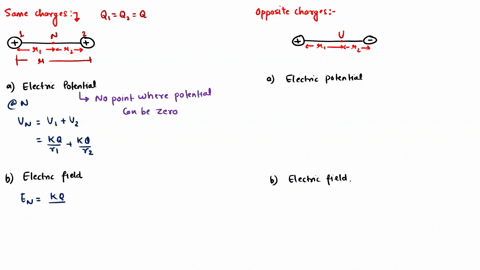 Same charges:- Q₁ = Q₂ = Q
1 N 2
+ r₁ r₂ +
r
a) Electric Potential
@ N
↳ No point where potential
Can be zero
V_N = V₁ + V₂
= KQ/r₁ + KQ/r₂
b) Electric field
E_N = KQ
Opposite charges:-
U
+ r₁ r₂ -
a) Electric potential
b) Electric field.